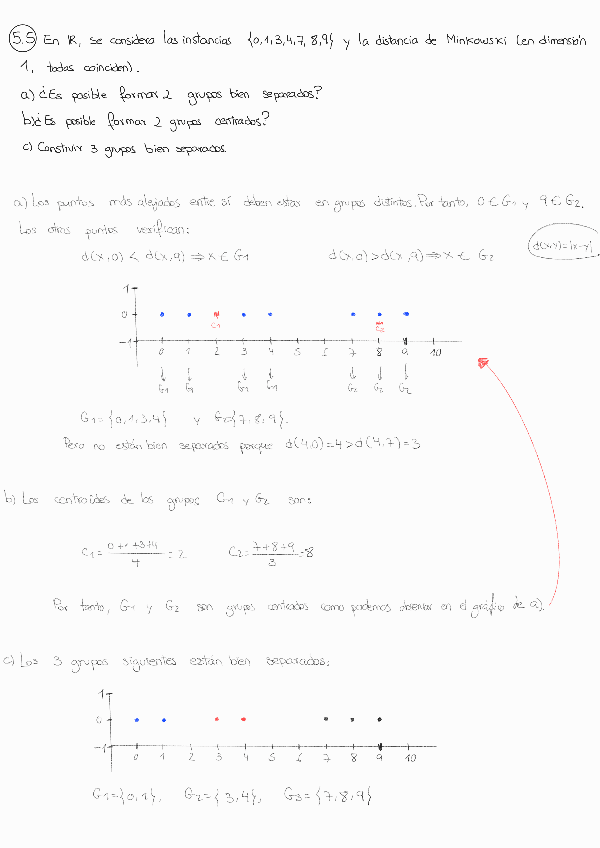 5.5 En ℝ, se considera las instancias {0,1,3,4,7,8,9} y la distancia de Minkowski (en dimensión
1, todas coinciden).
a) ¿Es posible formar 2 grupos bien separados?
b) ¿Es posible formar 2 grupos centrados?
c) Construir 3 grupos bien separados.
a) Los puntos más alejados entre sí deben estar en grupos distintos. Por tanto, 0 ∈ G1 y 9 ∈ G2.
Los otros puntos verifican:
d(x,y)=|x-y|
d(x,0) < d(x,9) ⇒ x ∈ G1 d(x,0) > d(x,9) ⇒ x ∈ G2
1
0
C1 C2
-1
0 1 2 3 4 5 6 7 8 9 10
↓ ↓ ↓ ↓ ↓ ↓ ↓
G1 G1 G1 G1 G2 G2 G2
G1={0,1,3,4} y G2={7,8,9}.
Pero no están bien separados porque d(4,0)=4>d(4,7)=3
b) Los centroides de los grupos G1 y G2 son:
C1= 0+1+3+4 / 4 =2 C2= 7+8+9 / 3 =8
Por tanto, G1 y G2 son grupos centrados como podemos observar en el gráfico de a)
c) Los 3 grupos siguientes están bien separados:
1
0
-1
0 1 2 3 4 5 6 7 8 9 10
G1={0,1}, G2={3,4}, G3={7,8,9}